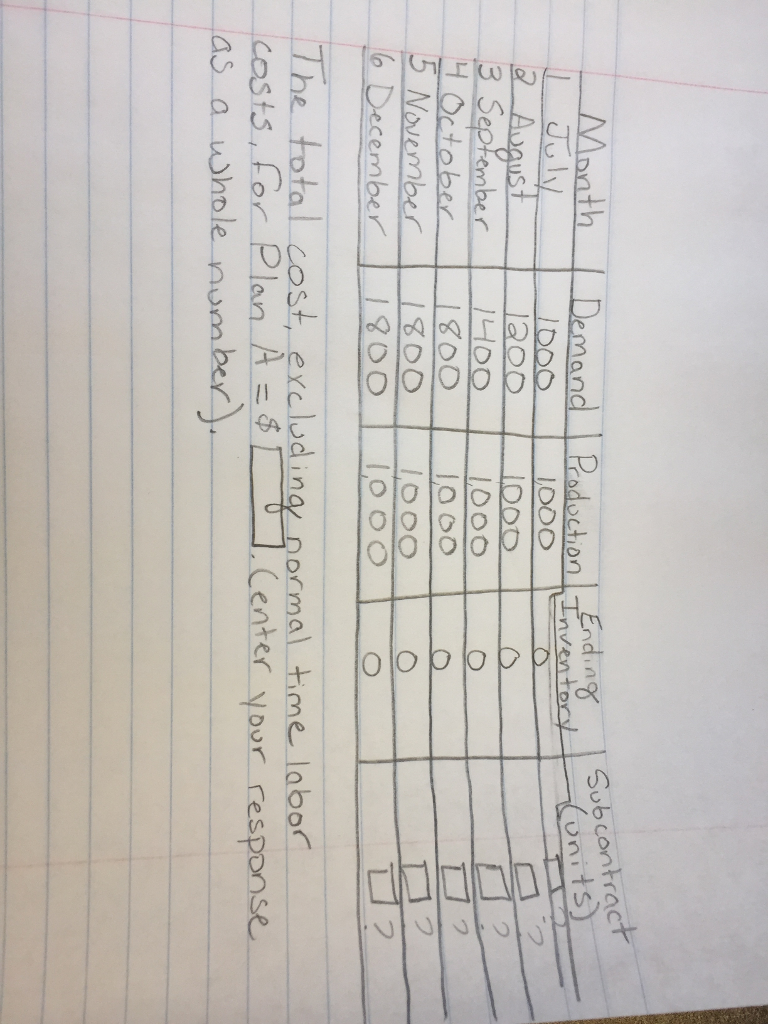 Month Demand Production Ending Inventory Subcontract (units)
1 July 1000 1,000 0 ?
2 August 1200 1000 0 ?
3 September 1400 1,000 0 ?
4 October 1800 1,000 0 ?
5 November 1800 1,000 0 ?
6 December 1800 1,000 0 ?
The total cost, excluding normal time labor
costs, for Plan A = $ . (enter your response
as a whole number).